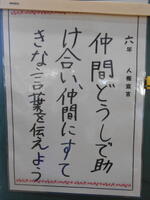 六年 人権宣言
仲間どうしで助
け合い仲間にすて
きな言葉を伝えよう